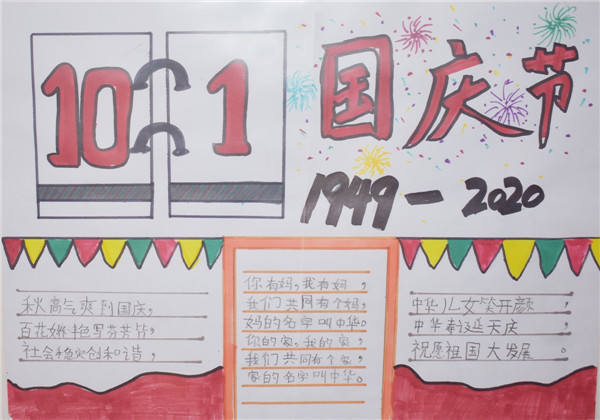 10 1
国庆节
1949-2020
秋高气爽到国庆，
百花娇艳写芬芳
社会稳定创和谐，
你有妈，我有妈，
我们共同有个妈，
妈的名字叫中华。
你的家，我的家，
我们共同有个家，
家的名字叫中华。
中华儿女笑开颜，
中华 延天庆
祝愿祖国大发展。